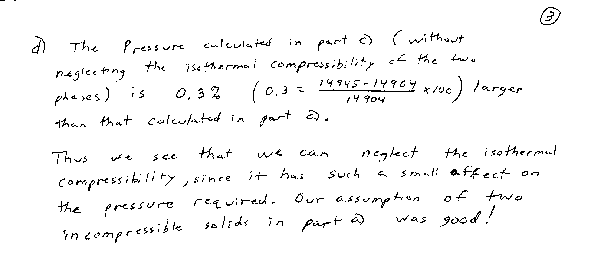 ③
d) The Pressure calculated in part c) (without
neglecting the isothermal compressibility of the two
phases) is 0.3% (0.3 = 14945-14904/14904 x100) larger
than that calculated in part a).
Thus we see that we can neglect the isothermal
compressibility, since it has such a small affect on
the pressure required. Our assumption of two
incompressible solids in part a) was good!